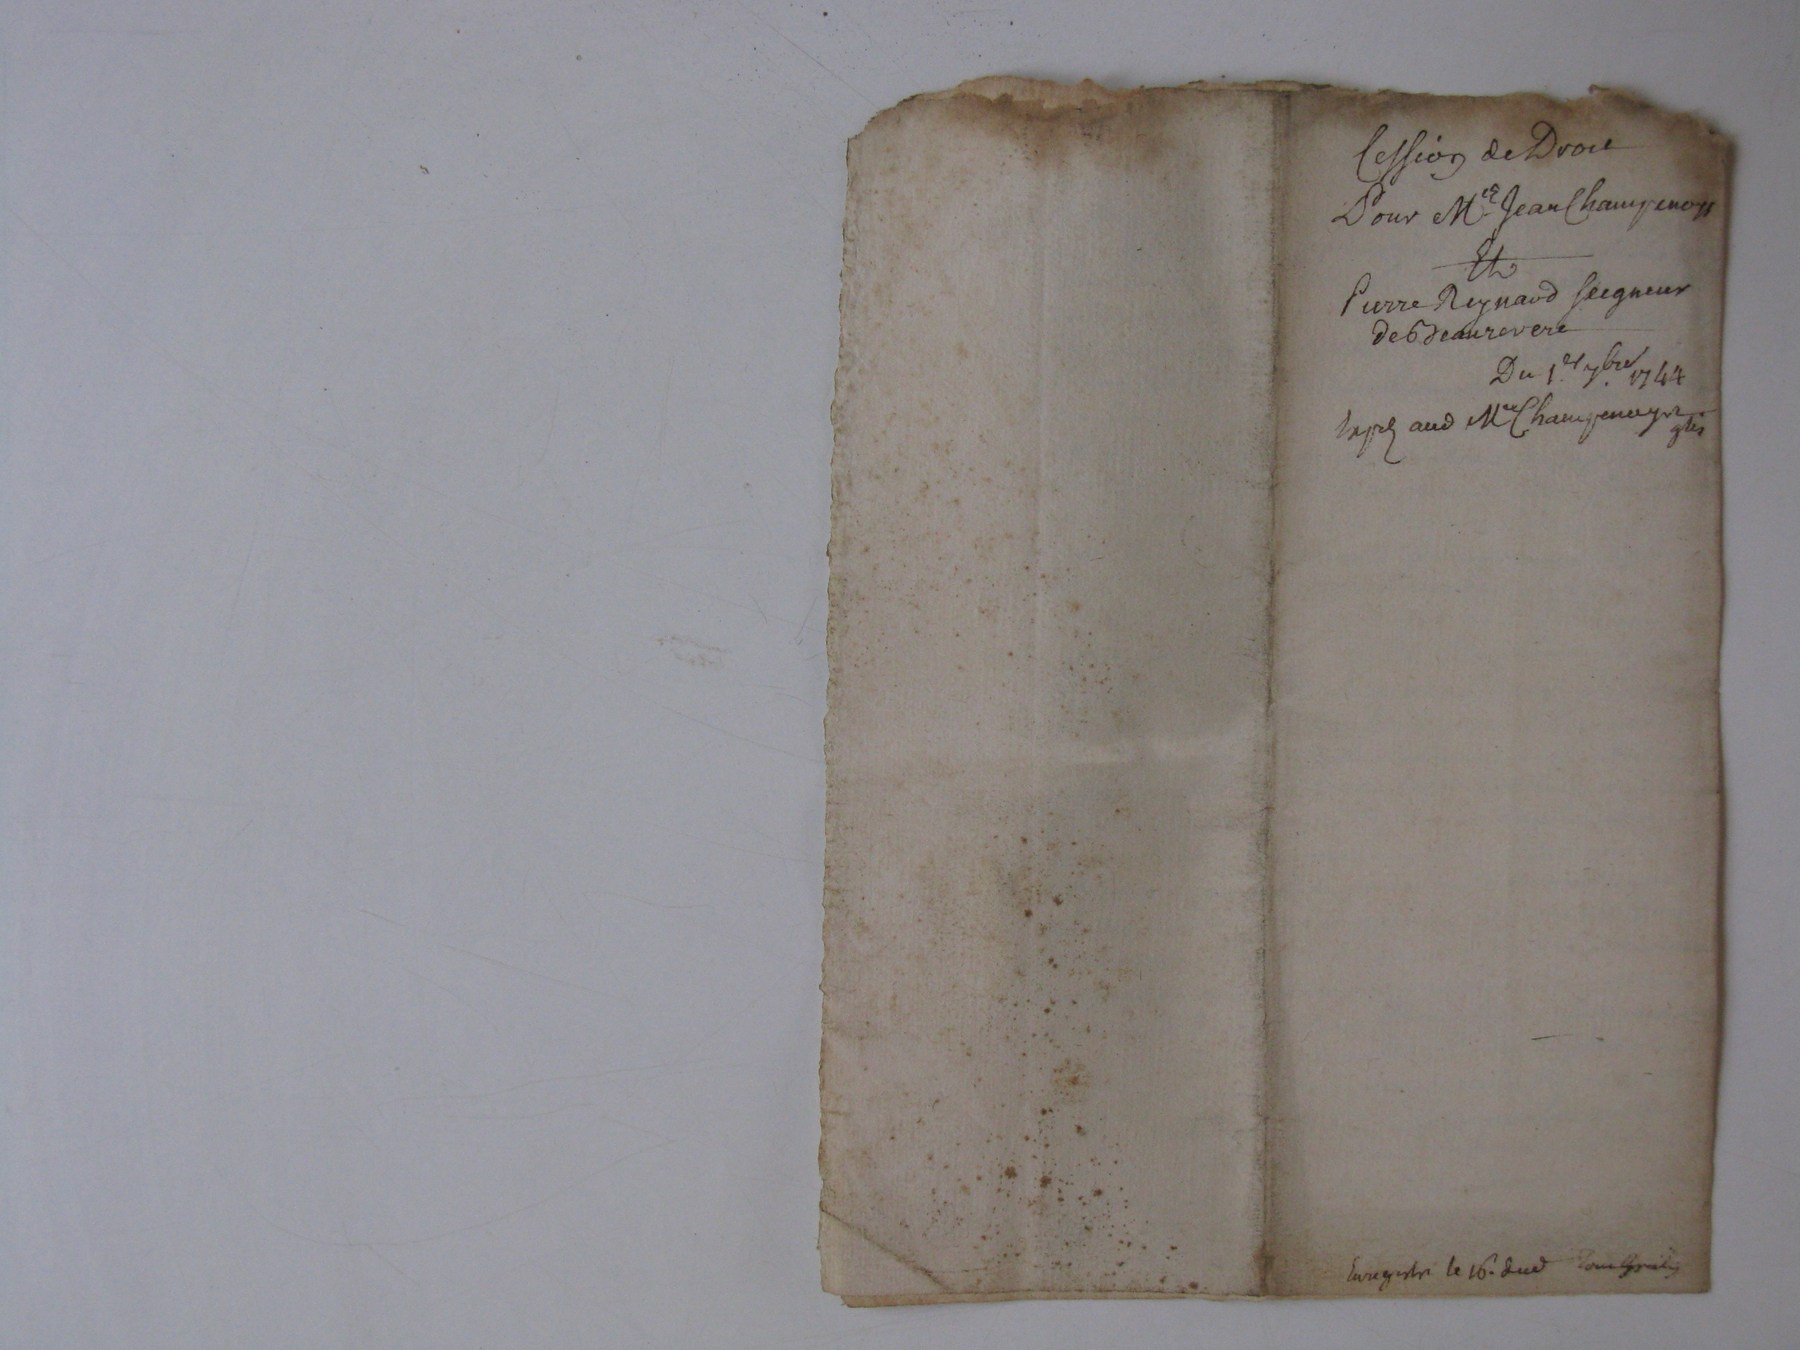 Cession de Droit
Pour Me Jean Champenoys
Et
Pierre Reynaud seigneur
de beaurevere
Du 1er 7bre 1744
Exp aud Me Champenoys
gtis
Enregistré le 16e dud